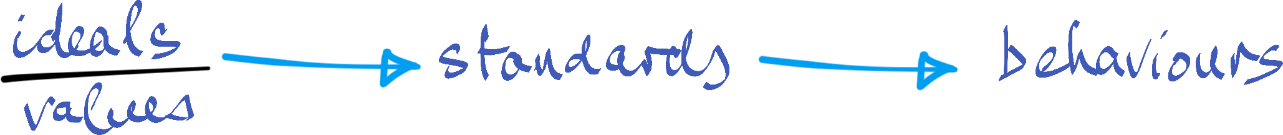 ideals
values
standards
behaviours